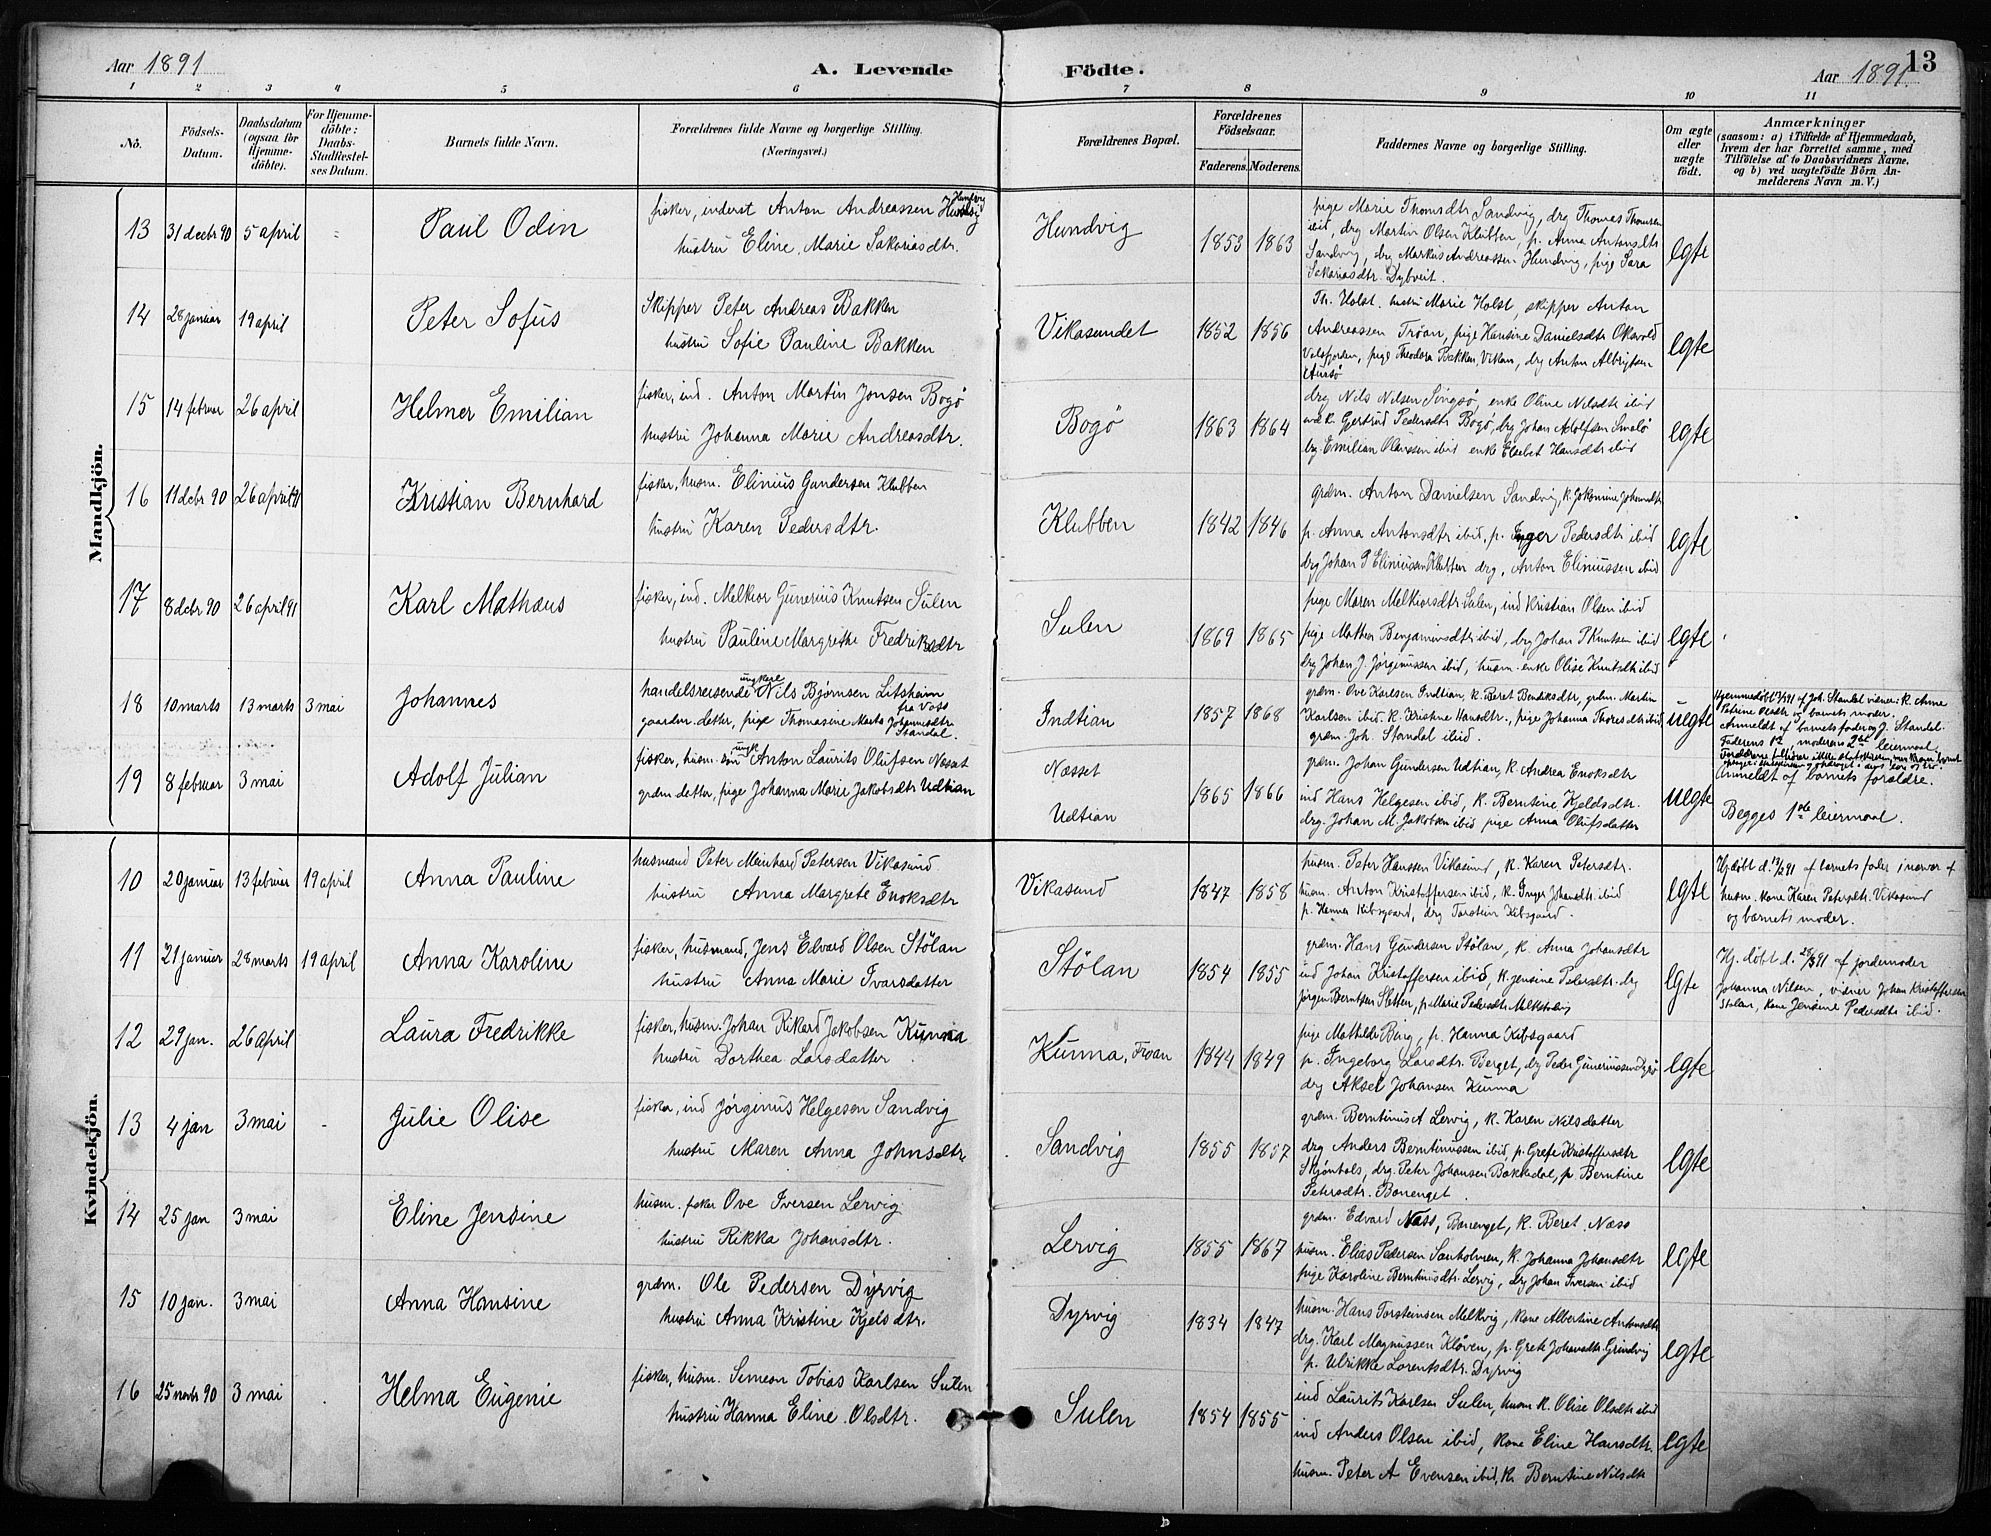 Aar 1891
A. Levende
Födte.
Aar 1891
13
1 2 3 4 5 6 7 8 9 10 11
No.
Födsels-Datum.
Daabsdatum (ogsaa for Hjemme-döbte).
For Hjemme-döbte: Daabs-Stadfæstel-ses Datum.
Barnets fulde Navn.
Forældrenes fulde Navne og borgerlige Stilling.
(Næringsvei.)
Forældrenes Bopæl.
Forældrenes Födselsaar.
Faderens. Moderens.
Faddernes Navne og borgerlige Stilling.
Om ægte eller uægte födt.
Anmærkninger
(saasom: a) i Tilfælde af Hjemmedaab, hvem der har forrettet samme, med Tilföielse af to Daabsvidners Navne, og b) ved uægtefödte Börn An-melderens Navn m. V.)
Mandkjön.
13 31 decbr 90 5 april Paul Odin
fisker, inderst Anton Andreassen Hundvig
hustru Eline Marie Sakariasdtr.
Hundvig 1853 1863
pige Marie Thomsdtr Sandvig, drg Thomas Thomsen
ibid, drg Martin Olsen Klubben, p. Anna Antonsdtr
Sandvig, drg Markus Andreassen Hundvig, pige Sara
Sakariasdtr. Dybveit.
egte
14 28 januar 19 april Peter Sofus
Skipper Peter Andreas Bakken
hustru Sofie Pauline Bakken
Vikasundet 1852 1856
Th. Holst, hustru Marie Holst, skipper Anton
Andreassen Trøan, pige Hansine Danielsdtr
pige Theodora Bakken, Viken, drg Anton Albrigtsen
egte
15 14 februar 26 april Helmer Emilian
fisker, ind. Anton Martin Jonsen Bogø
hustru Johanna Marie Andreasdtr.
Bogø 1863 1864
drg Nils Nilsen Singsø, enke Oline Nilsdtr ibid
Gjertrud Pedersdtr Bogø, drg Johan Adolfsen Smolø
drg. Emilian Olaussen ibid enke Elsebet Hansdtr ibid
egte
16 11 decbr 90 26 april 91 Kristian Bernhard
fisker, husm. Elinius Gundersen Klubben
hustru Karen Pedersdtr.
Klubben 1842 1846
grdm. Anton Danielsen Sandvig, k. Jokomine Johansdtr
p. Anna Antonsdtr ibid, p. Inger Pedersdtr ibid
drg Johan P Eliniussen Klubben drg, Anton Eliniussen ibid
egte
17 8 decbr 90 26 april 91 Karl Mathæus
fisker, ind. Melkior Gunerius Knutsen Sulen
hustru Pauline Margrethe Fredriksdtr
Sulen 1869 1865
pige Maren Melkiorsdtr Sulen, ind Kristian Olsen ibid
pige Mathea Benjaminsdtr ibid, drg Johan P Knutsen ibid
drg Johan J. Jørginussen ibid, husm. enke Olise Knutsdtr ibid
egte
18 10 marts 13 marts 3 mai Johannes
handelsreisende ungkarl Nils Bjørnsen Litsheim fra Voss
gaardm. datter, pige Thomasine Marta Johannesdtr Standal.
Indtian 1857 1868
grdm. Ove Karlsen Indtian, k. Beret Bendiksdtr, grdm. Martin
Karlsen ibid. k. Kristine Hansdtr., pige Johanna Thoresdtr ibid
grdm. Joh. Standal ibid.
uegte
Hjemmedøbt 13/3 91 af Joh. Standal vidner: k. Anne
Petrine Olsdtr og barnets moder.
Anmeldt af barnets fader og J. Standal.
Faderens 1ste, moderens 2det leiermaal.
19 8 februar 3 mai Adolf Julian
fisker, husm. søn ungk Anton Laurits Olufsen Næsset
grdm. datter, pige Johanna Marie Jakobsdtr Udtian
Næsset
Udtian
1865 1866
grdm. Johan Gundersen Udtian, k. Andrea Enoksdtr
ind Hans Helgesen ibid, k. Berntine Kjeldsdtr.
drg. Johan M. Jakobsen ibid pige Anna Olufsdatter
uegte
Anmeldt af barnets forældre.
Begges 1ste leiermaal.
Kvindekjön.
10 20 januar 13 februar 19 april Anna Pauline
husmand Peter Meinhard Petersen Vikasund
hustru Anna Margrete Enoksdtr
Vikasund 1847 1858
husm. Peter Hanssen Vikasund, k. Karen Petersdtr.
husm. Anton Kristoffersen ibid, k. Inger Johansdtr ibid
p. Hanna Kibsgaard, drg Torstein Kibsgaard.
egte
Hj.døbt d. 13/2 91 af barnets fader i nærvær af
husm. kone Karen Petersdtr. Vikasund
og barnets moder.
11 21 januar 28 marts 19 april Anna Karoline
fisker, husmand, Jens Edvard Olsen Stølan
hustru Anna Marie Ivarsdatter
Stølan 1854 1855
grdm. Hans Gundersen Stølan, k. Anna Johansdtr
ind Johan Kristoffersen ibid, k. Jensine Pedersdtr. drg
Jørgen Berntsen Sletten, p. Marie Pedersdtr
egte
Hj. døbt d. 28/3 91 af jordemoder
Johanna Nilsen, vidner Johan Kristoffersen
Stølan, kone Jensine Pedersdtr ibid.
12 29 jan. 26 april Laura Fredrikke
fisker, husm. Johan Rikard Jakobsen Kunna
hustru Dorthea Larsdatter
Kunna, Froan 1844 1849
pige Mathilde Berg, p. Hanna Kibsgaard
p. Ingeborg Larsdtr. Berget, drg Peder Guneriussen Dyrø
drg Aksel Johansen Kunna
egte
13 4 jan 3 mai Julie Olise
fisker, ind Jørginus Helgesen Sandvig
hustru Maren Anna Johnsdtr
Sandvig 1855 1857
grdm. Berntinus A Lervig, k. Karen Nilsdatter
drg Anders Berntinussen ibid, p. Grete Kristoffersdtr
Skjønhals, drg. Peter Johansen Bakkedal, p Berntine
Petersdtr. Bonenget.
egte
14 25 jan 3 mai Eline Jensine
husm. fisker Ove Iversen Lervig
hustru Rikka Johansdtr.
Lervig 1855 1867
grdm. Edvard Næss, Bonenget, k. Beret Næss
husm. Elias Pedersen Sauholmen, k. Johanna Johansdtr
pige Karoline Berntinusdtr. Lervig, drg Johan Iversen ibid
egte
15 10 jan. 3 mai Anna Hansine
grdm. Ole Pedersen Dyrvig
hustru Anna Kristine Kjelsdtr.
Dyrvig 1834 1847
husm. Hans Torsteinsen Melkvig, kone Albertine Antonsdtr
drg. Karl Magnussen Kløven, p. Grete Johansdtr. Grindvig
p. Ulrikke Lorentsdtr. Dyrvig
egte
16 25 novbr 90 3 mai Helma Eugenie
fisker, husm. Simeon Tobias Karlsen Sulen
hustru Hanna Eline Olsdtr.
Sulen 1854 1855
ind Laurits Karlsen Sulen, husm k. Olise Olsdtr ibid
ind Anders Olsen ibid, kone Eline Hansdtr.
husm. Peter A Evensen ibid, k. Berntine Nilsdtr
egte